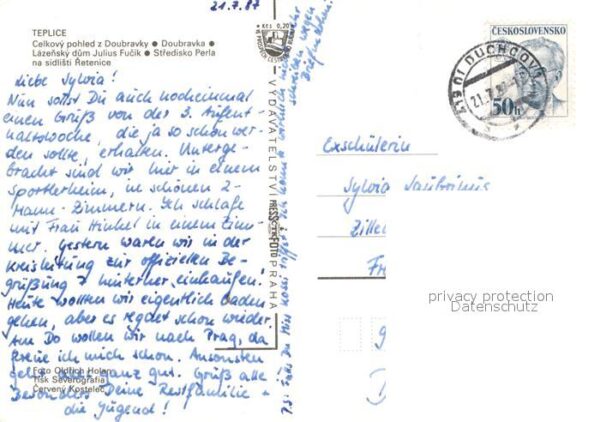 21.7.87
TEPLICE
Celkový pohled z Doubravky ● Doubravka ●
Lázeňský dům Julius Fučík ● Středisko Perla
na sídlišti Řetenice
Liebe Sylvia!
Nun sollst Du auch nocheinmal
einen Gruß von der 3. Aufent-
haltswoche, die ja so schön wer-
den sollte, erhalten. Unterge-
bracht sind wir hier in einem
Sportlerheim, in schönen 2-
Mann-Zimmern. Ich schlafe
mit Frau Hinkel in einem Zim-
mer. Gestern waren wir in der
Kreisleitung zur offiziellen Be-
grüßung & hinterher einkaufen.
Heute wollten wir eigentlich baden
gehen, aber es regnet schon wieder.
Am Do wollen wir nach Prag, da
freue ich mich schon. Ansonsten
geht alles ganz gut. Grüß alle
Besonders Deine Restfamilie -
die Jugend!
Foto Oldřich Holan
Tisk Severografia
Červený Kostelec
P.S. Falls Du
Ich konnte
schicken wegen
Kčs 0,20
VYDAVATELSTVÍ PRESSFOTO PRAHA
ČESKOSLOVENSKO
50h
419 01 DUCHCOV
21.7.87
Exschülerin
Sylvia
Ziller
Fr
privacy protection
Datenschutz